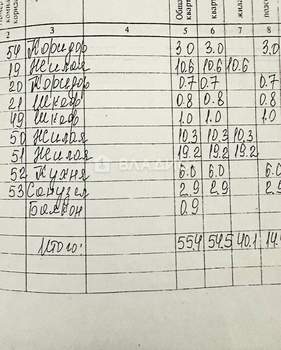 2 3 4 5 6 7 8
54 Коридор 3.0 3.0 3.0
19 Жилая 10.6 10.6 10.6
20 Коридор 0.7 0.7 0.7
21 Шкаф 0.8 0.8 0.8
49 Шкаф 1.0 1.0 1.0
50 Жилая 10.3 10.3 10.3
51 Жилая 19.2 19.2 19.2
52 Кухня 6.0 6.0 6.0
53 Санузел 2.9 2.9
Балкон 0.9
Итого: 55.4 54.5 40.1